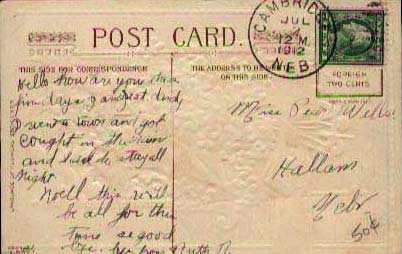 CAMBRIDGE
JUL
12 M
1912
NEB.
POST CARD.
THIS SIDE FOR CORRESPONDENCE
THE ADDRESS TO BE
ON THIS SIDE
FOREIGN
TWO CENTS
Hello how are you these
fine days I am just
I went to town and got
cought in the rain
and had to stay all
Night
Well this will
be all for this
Time so good
bye from Ruth
Miss Wells
Hallam
Nebr
50¢